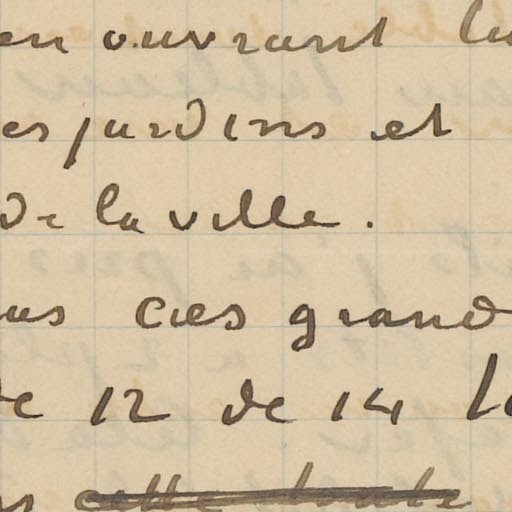 en ouvrant la
es jardins et
de la ville.
us ces grand
de 12 de 14 l
s cette